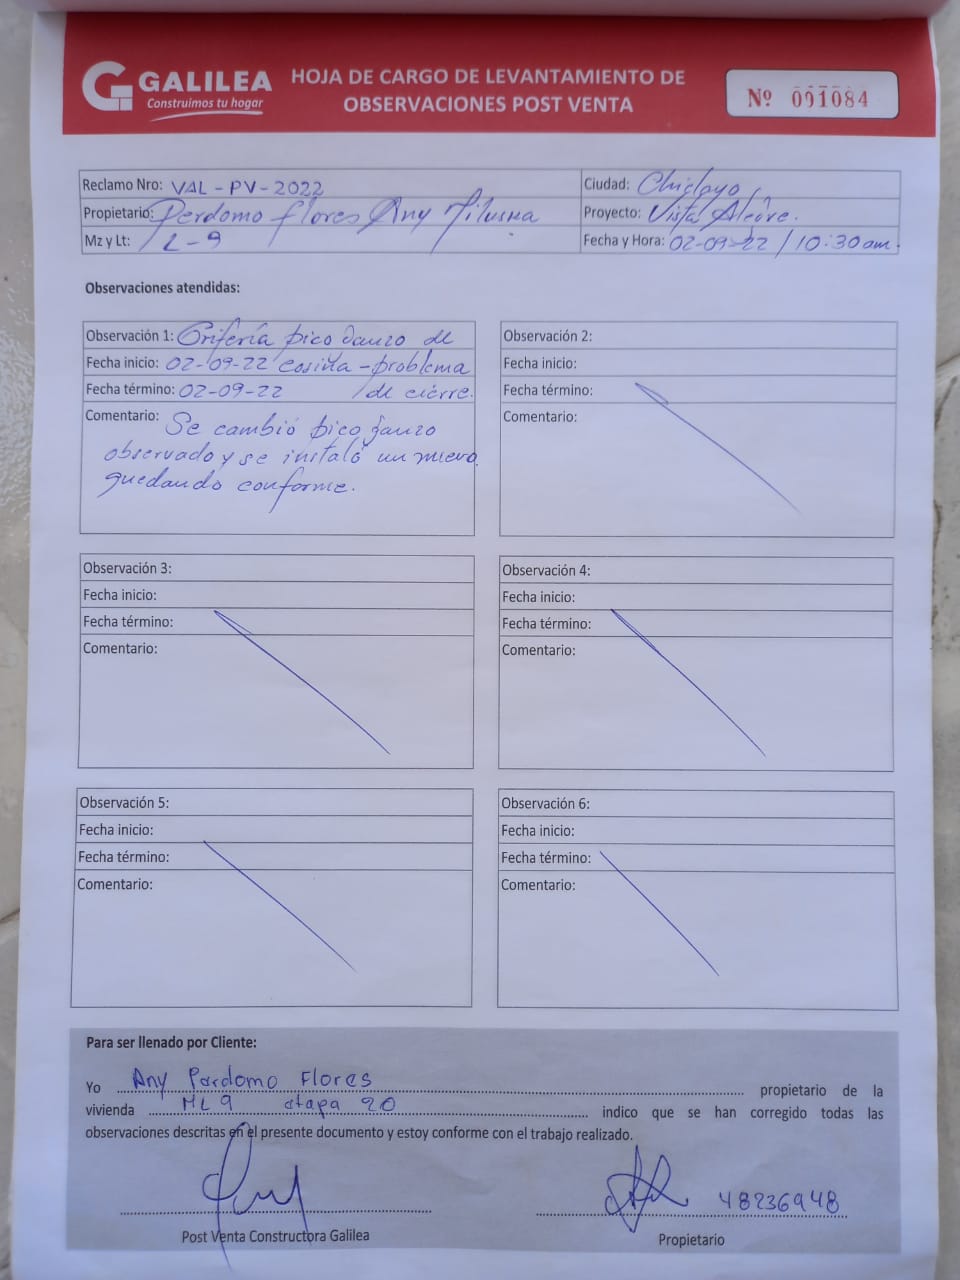 GALILEA
Construimos tu hogar
HOJA DE CARGO DE LEVANTAMIENTO DE
OBSERVACIONES POST VENTA
Nº 001084
Reclamo Nro: VAL - PV - 2022
Ciudad: Chiclayo
Propietario: Perdomo Flores Any Miluska
Proyecto: Vista Alegre.
Mz y Lt: / L - 9
Fecha y Hora: 02-09-22 / 10:30 am.
Observaciones atendidas:
Observación 1: Grifería pico Ganzo de
Fecha inicio: 02-09-22 cosina - problema
Fecha término: 02-09-22 / de cierre.
Comentario: Se cambió pico ganzo
observado y se instaló un nuevo
quedando conforme.
Observación 2:
Fecha inicio:
Fecha término:
Comentario:
Observación 3:
Fecha inicio:
Fecha término:
Comentario:
Observación 4:
Fecha inicio:
Fecha término:
Comentario:
Observación 5:
Fecha inicio:
Fecha término:
Comentario:
Observación 6:
Fecha inicio:
Fecha término:
Comentario:
Para ser llenado por Cliente:
Yo Any Pardomo Flores propietario de la
vivienda ML9 etapa 20 indico que se han corregido todas las
observaciones descritas en el presente documento y estoy conforme con el trabajo realizado.
48236948
Post Venta Constructora Galilea
Propietario